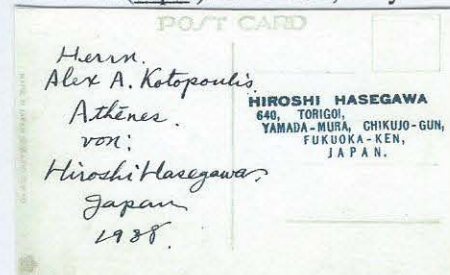 POST CARD
Herrn.
Alex A. Kotopoulis
Athènes.
von:
Hiroshi Hasegawa.
Japan
1938.
HIROSHI HASEGAWA
640, TORIGOI,
YAMADA-MURA, CHIKUJO-GUN,
FUKUOKA-KEN,
JAPAN.